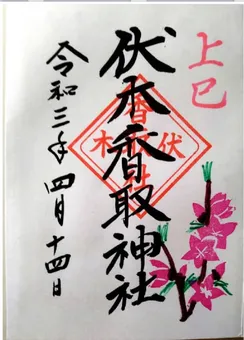 上巳
伏木香取神社
令和三年四月十四日
伏木
香